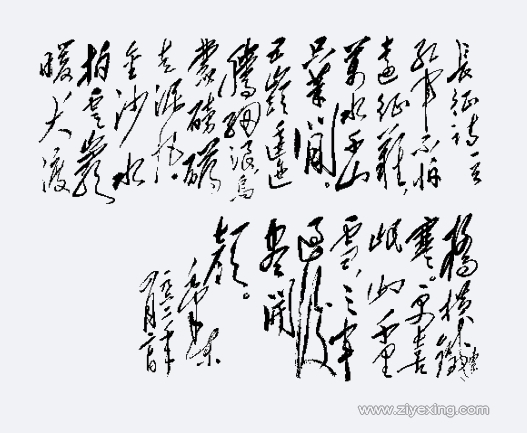 長征詩一首
紅軍不怕
遠征難,
萬水千山
只等閒。
五嶺逶迤
騰細浪,烏
蒙磅礴
走泥丸。
金沙水
拍雲巖
暖大渡
橋橫鐵索
寒。更喜
岷山千里
雪,三軍
過後
盡開
顏。
毛澤東
www.ziyexing.com